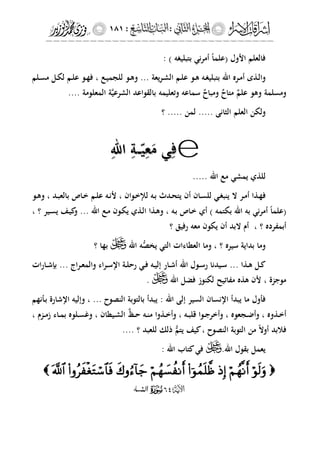 إشراقات الإسراء الجزء الثاني : الباب التاسع : ١٨١
فالعلم الأول (علماً أمرني بتبليغه) :
والذى أمره الله بتبليغه هو علم الشريعة ... وهو للجميع ، فهو علم لكل مسلم
ومسلمة وهو علمٌ متاحٌ ومباحٌ سماعه وتعليمه بالقواعد الشرعيَّة المعلومة ....
ولكن العلم الثانى ..... لمن ..... ؟
فِي مَعِيَّةِ اللهِ
للذي يمشي مع الله .....
فهذا أمر لا ينبغي للسان أن يتحدث به للإخوان ، لأنه علم خاص بالعبد ، وهو
(علماً أمرني به الله بكتمه) أي خاص به ، وهذا الذي يكون مع الله ... وكيف يسير ؟ ،
أبمفرده ؟ ، أم لابد أن يكون معه رفيق ؟
وما بداية سيره ؟ ، وما العطاءات التي يخصُّه الله بها ؟
كل هذا ... سيدنا رسول الله أشار إليه في رحلة الإسراء والمعراج ... بإشارات
موجزة ، لأن هذه مفاتيح لكنوز فضل الله .
فأول ما يبدأ الإنسان السير إلى الله : يبدأ بالتوبة النصوح ... ، وإليه الإشارة بأنهم
أخذوه ، وأضجعوه ، وأخرجوا قلبه ، وأخذوا منه حظ الشيطان ، وغسلوه بماء زمزم ،
فلابد أولاً من التوبة النصوح ، كيف يتمُّ ذلك للعبد ؟ ....
يعمل بقول الله في كتاب الله :
﴿ وَلَوْ أَنَّهُمْ إِذ ظَّلَمُوٓا۟ أَنفُسَهُمْ جَآءُوكَ فَٱسْتَغْفَرُوا۟ ٱللَّهَ ﴾
الآية ٦٤ سورة النساء